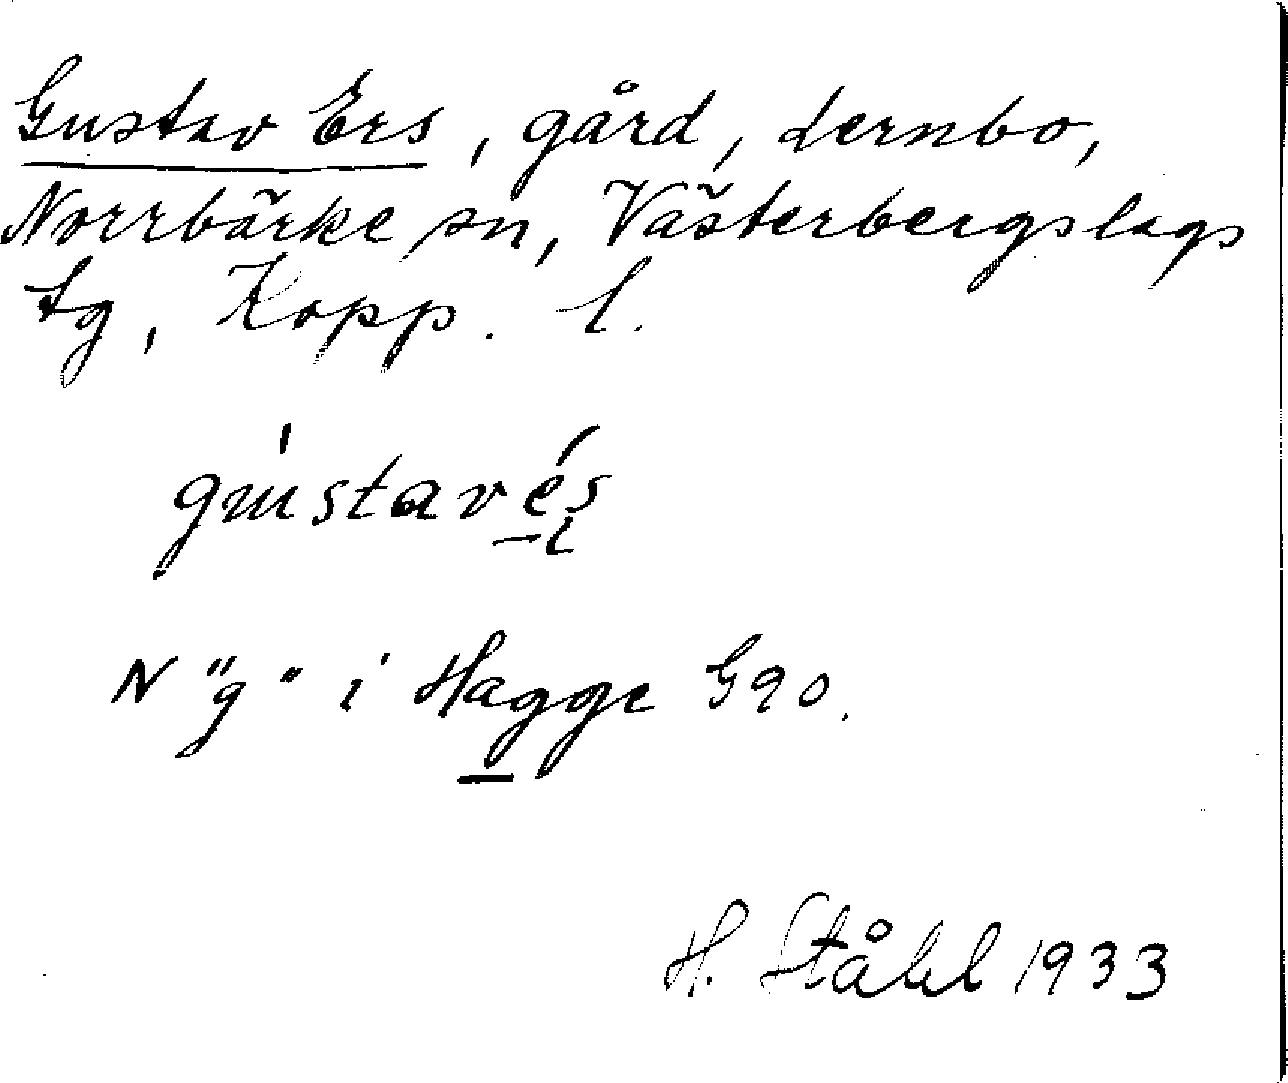 Gustav Ers, gård, Lernbo,
Norrbärke sn, Västerbergslags
tg, Kopp. l.
gústavés
N "g" i Hagge G90.
H. Ståhl 1933